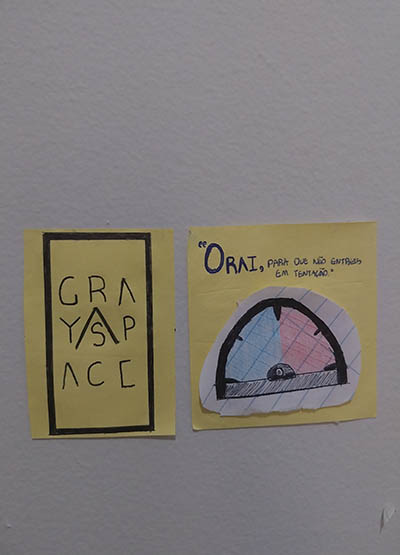 GRA
YSP
ACE
"ORAI, PARA QUE NÃO ENTREIS
EM TENTAÇÃO."